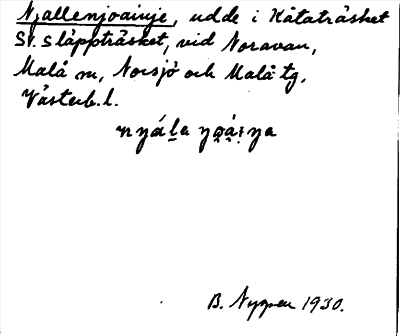 Njallenjoainje, udde i Kåtaträsket
Sv. Släppträsket, vid Noravau,
Malå m, Norsjö och Malå tg,
Västerb. l.
B. Nyman 1930.